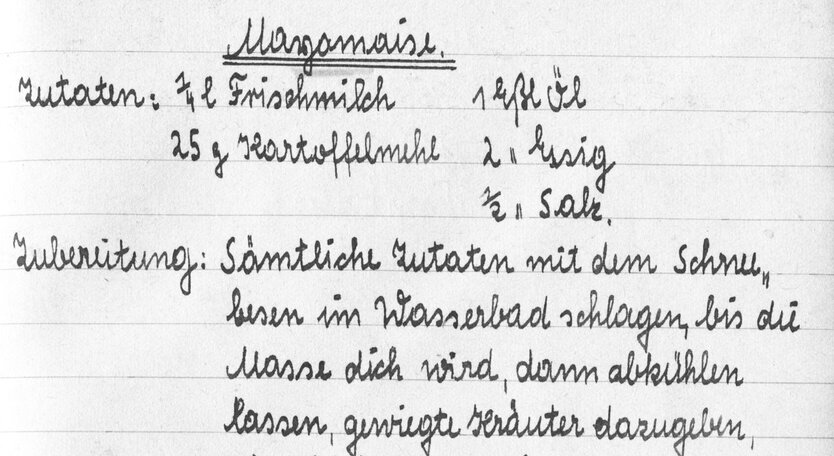 Mayonaise.
Zutaten: 1/4 l Frischmilch 1 Eßl Öl
25 g Kartoffelmehl 2 " Essig
1/2 " Salz.
Zubereitung: Sämtliche Zutaten mit dem Schnee„
besen im Wasserbad schlagen, bis die
Masse dick wird, dann abkühlen
lassen, gewiegte Kräuter dazugeben,